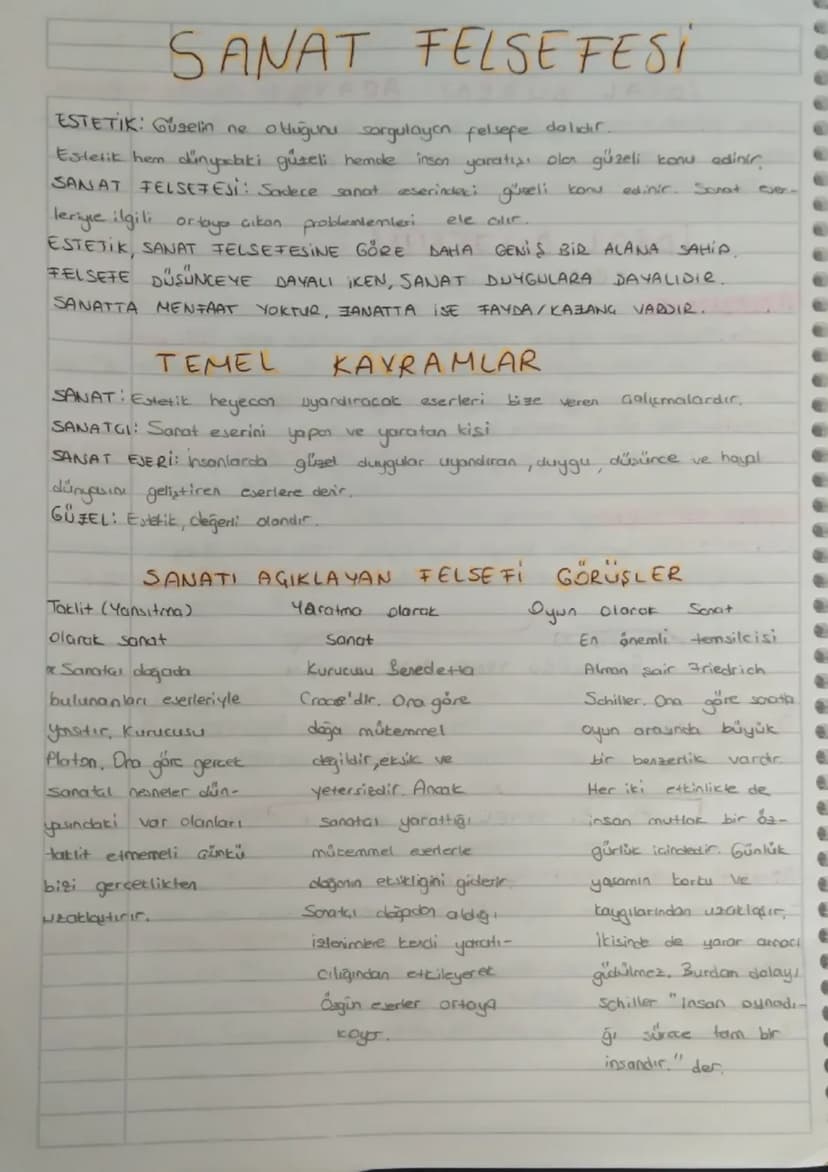 SANAT FELSEFESİ
ESTETİK: Güzelin ne olduğunu sorgulayan felsefe dalıdır.
Estetik hem dünyadaki güzeli hemde insan yaratısı olan güzeli konu edinir.
SANAT FELSEFESİ: Sadece sanat eserindeki güzeli konu edinir. Sanat eser-
leriyle ilgili ortaya çıkan problemlemleri ele alır.
ESTETİK, SANAT FELSEFESİNE GÖRE DAHA GENİŞ BİR ALANA SAHİP.
FELSEFE DÜŞÜNCEYE DAYALI İKEN, SANAT DUYGULARA DAYALIDIR.
SANATTA MENFAAT YOKTUR, ZANATTA İSE FAYDA/KAZANÇ VARDIR.
TEMEL KAVRAMLAR
SANAT: Estetik heyecan uyandıracak eserleri bize veren çalışmalardır.
SANATÇI: Sanat eserini yapan ve yaratan kişi
SANAT ESERİ: İnsanlarda güzel duygular uyandıran, duygu, düşünce ve hayal
dünyasını geliştiren eserlere denir.
GÜZEL: Estetik, değerli olandır.
SANATI AÇIKLAYAN FELSEFİ GÖRÜŞLER
Taklit (Yansıtma)
olarak sanat
* Sanatçı doğada
bulunanları eserleriyle
yansıtır. Kurucusu
Platon. Ona göre gerçek
sanatçı nesneler dün-
yasındaki var olanları
taklit etmemeli çünkü
bizi gerçeklikten
uzaklaştırır.
Yaratma olarak
Sanat
Kurucusu Benedetta
Croce'dir. Ona göre
doğa mükemmel
değildir, eksik ve
yetersizdir. Ancak
sanatçı yarattığı
mükemmel eserlerle
doğanın eksikliğini giderir.
Sanatçı doğadan aldığı
izlenimlere kendi yaratı-
cılığından etkileyerek
Özgün eserler ortaya
koyar.
Oyun olarak Sanat
En önemli temsilcisi
Alman şair Friedrich
Schiller. Ona göre sanatla
oyun arasında büyük
bir benzerlik vardır.
Her iki etkinlikte de
insan mutlak bir öz-
gürlük içindedir. Günlük
yaşamın korku ve
kaygılarından uzaklaşır,
İkisinde de yarar amacı
güdülmez. Burdan dolayı
Schiller "insan oynadı-
ğı sürece tam bir
insandır." der.